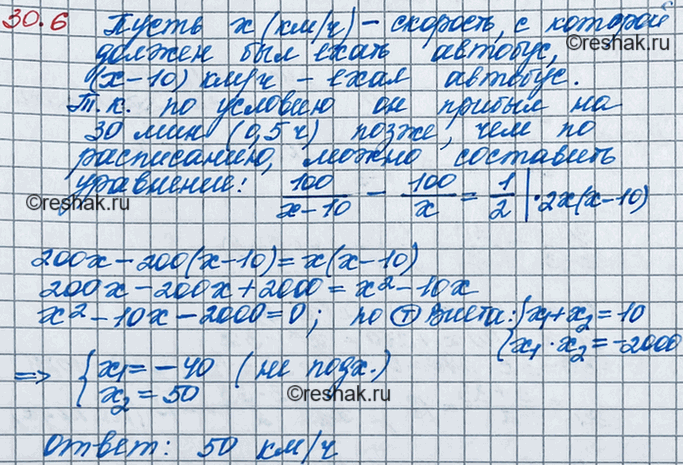 30.6 Пусть x (км/ч) – скорость, с которой
должен был ехать автобус,
©reshak.ru
(x-10) км/ч – ехал автобус.
Т.к. по условию он прибыл на
30 мин (0,5 ч) позже, чем по
расписанию, можно составить
уравнение: 100/(x-10) - 100/x = 1/2 | · 2x(x-10)
©reshak.ru
200x - 200(x-10) = x(x-10)
200x - 200x + 2000 = x² - 10x
x² - 10x - 2000 = 0; по Т Виета: { x₁ + x₂ = 10
{ x₁ · x₂ = -2000
=> { x₁ = -40 (не подх.)
{ x₂ = 50
©reshak.ru
Ответ: 50 км/ч